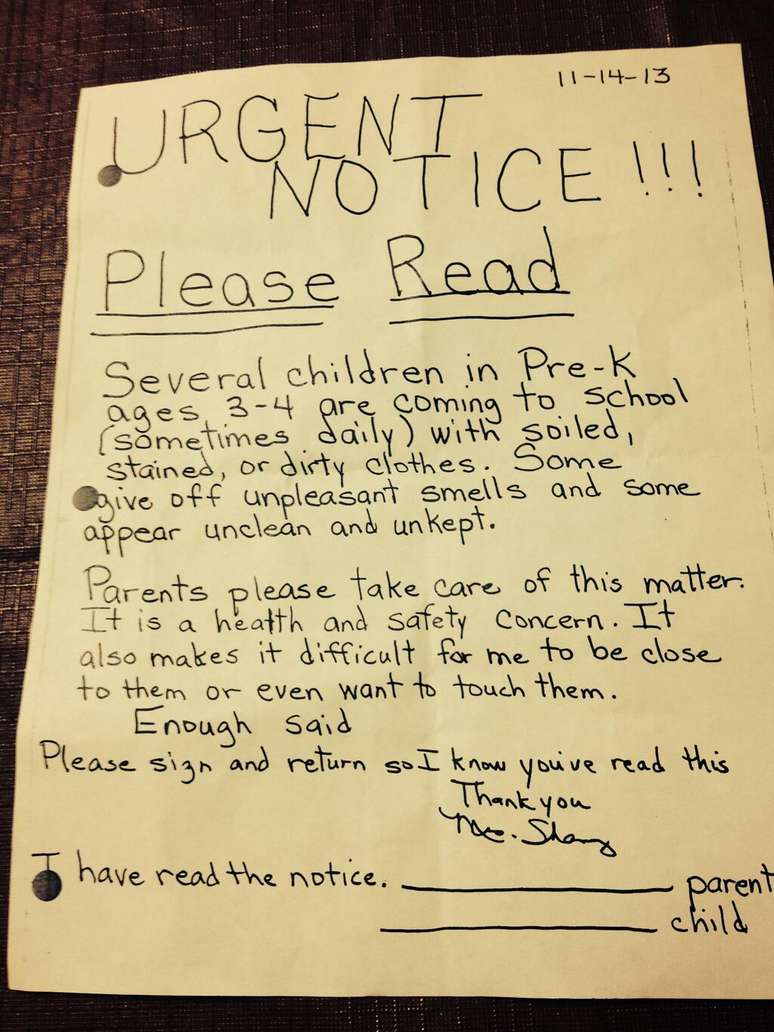 11-14-13
URGENT
NOTICE!!!
Please Read
Several children in Pre-K
ages 3-4 are coming to school
(sometimes daily) with soiled,
stained, or dirty clothes. Some
give off unpleasant smells and some
appear unclean and unkept.
Parents please take care of this matter.
It is a health and safety concern. It
also makes it difficult for me to be close
to them or even want to touch them.
Enough said
Please sign and return so I know you've read this
Thank you
I have read the notice. parent
child